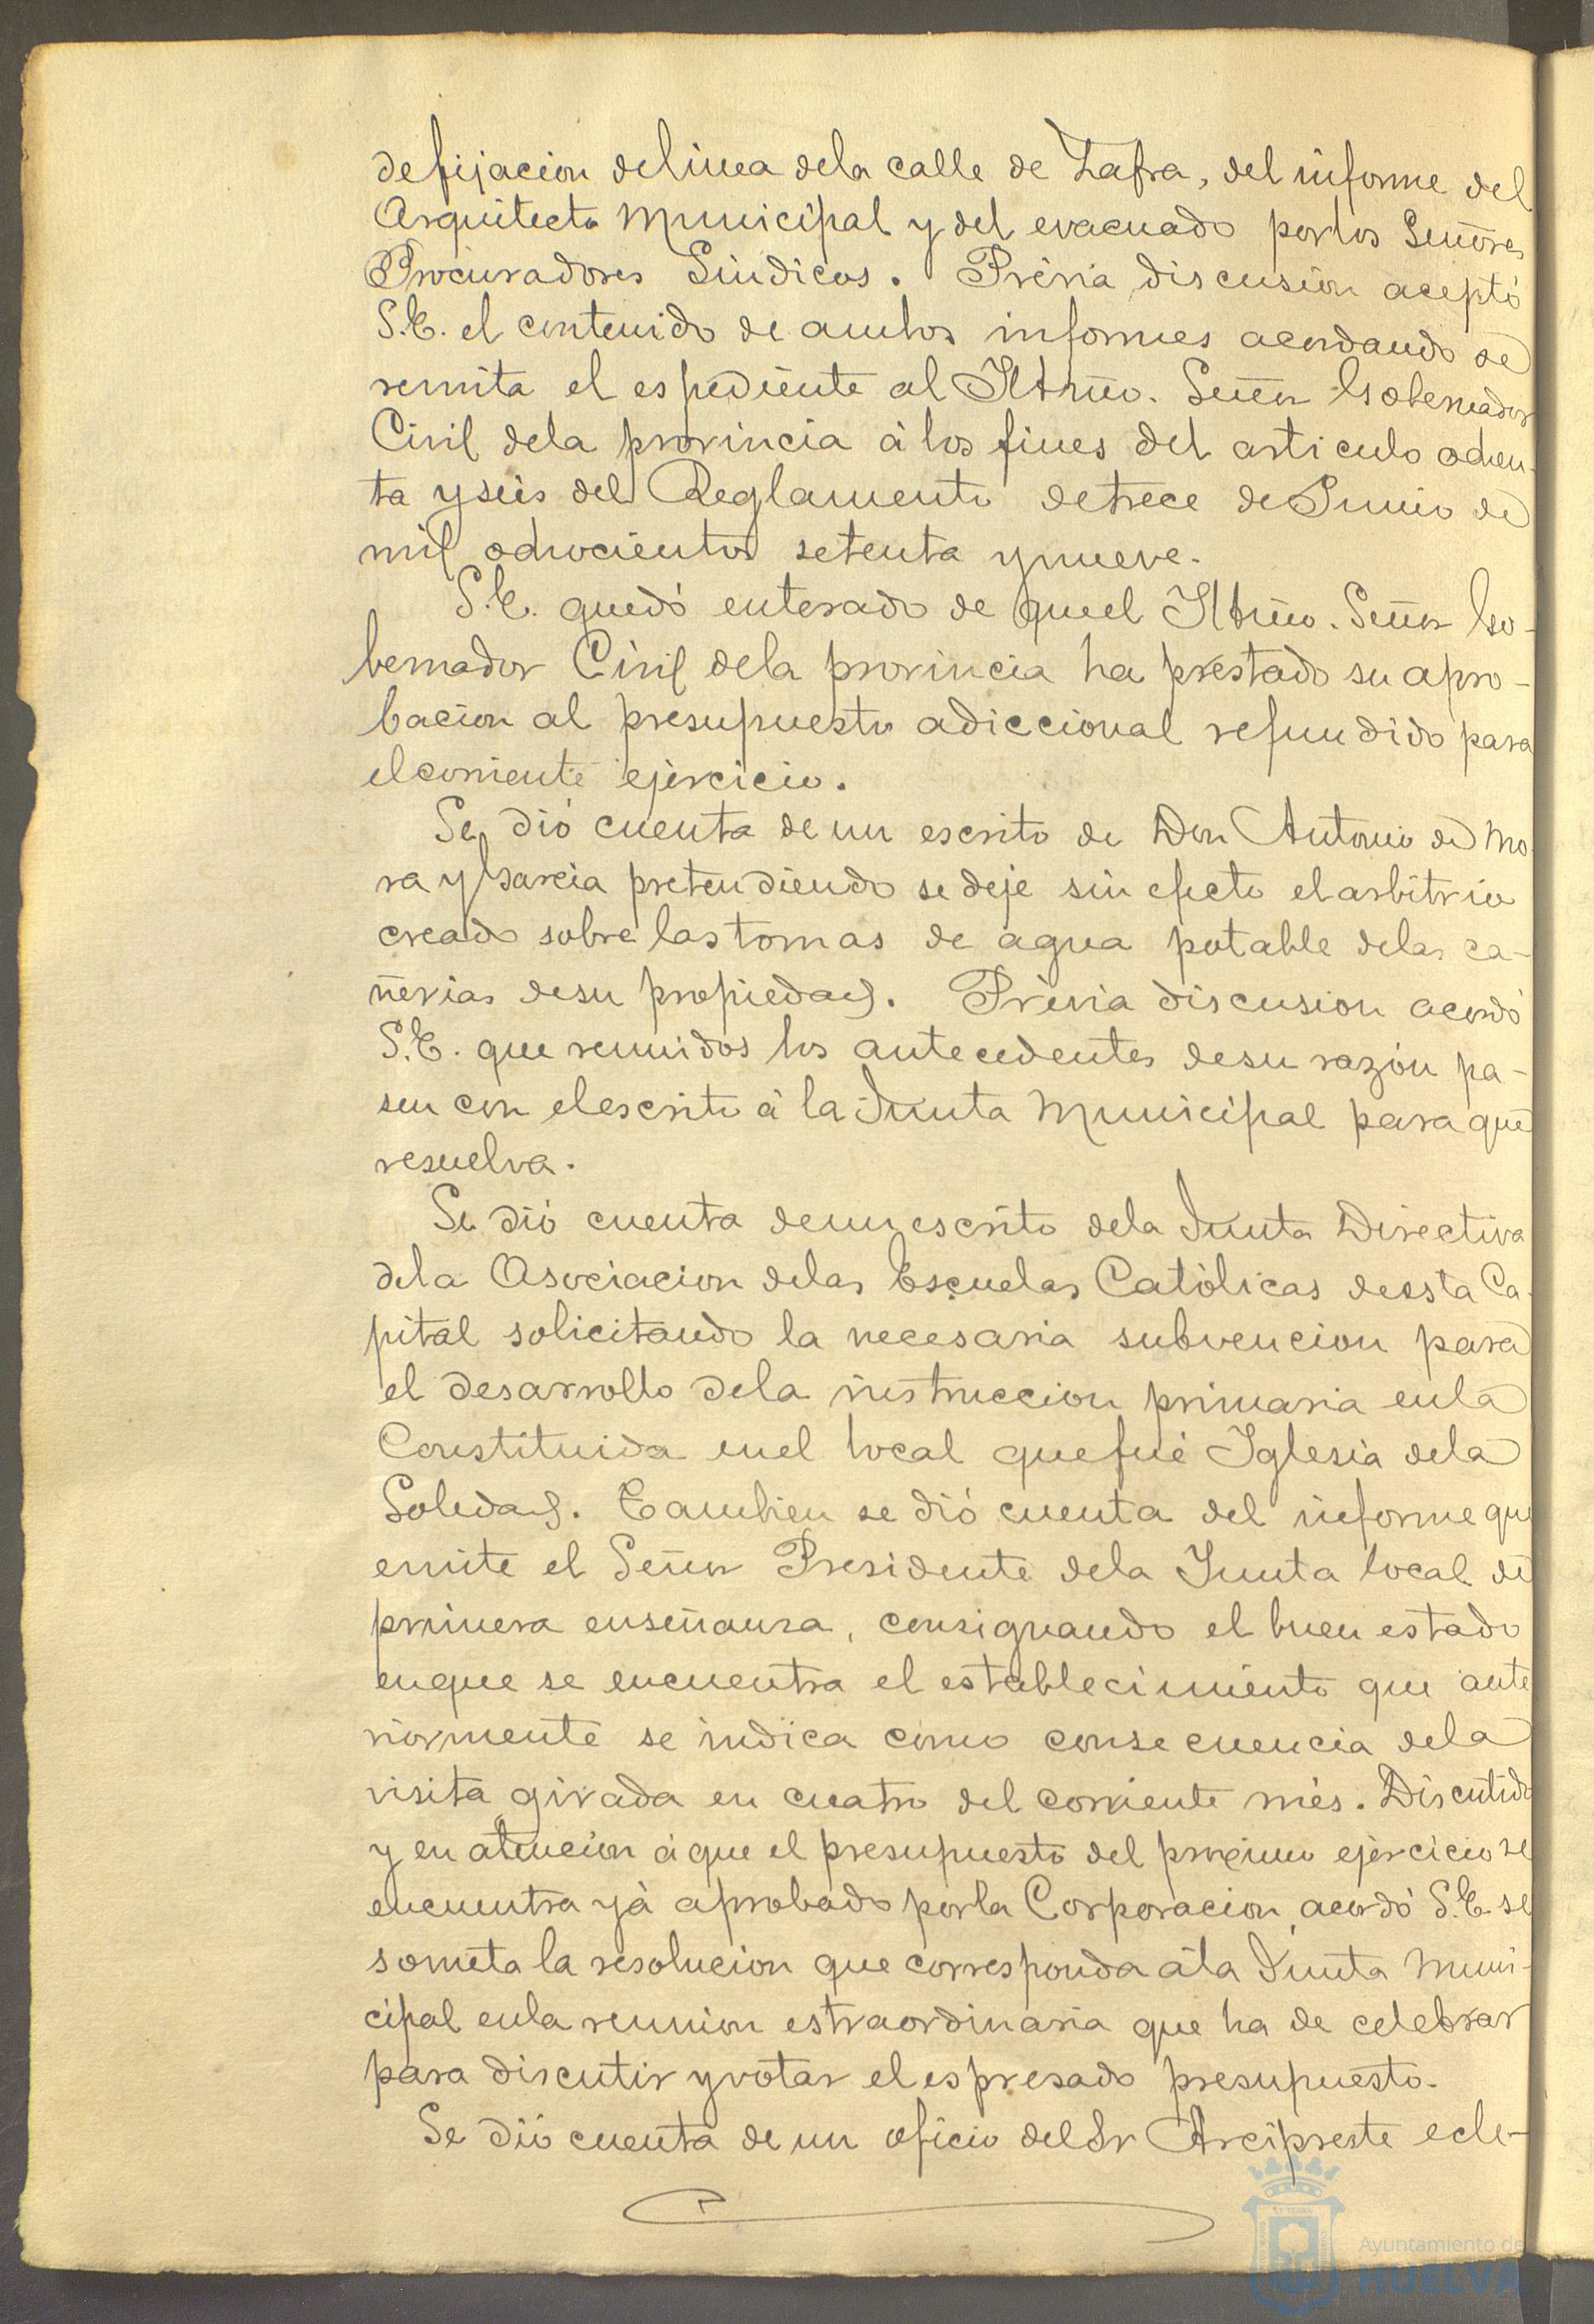 de fijacion de linea de la calle de Zafra, del informe del
Arquitecto Municipal y del evacuado por los Señores
Procuradores Síndicos. Prévia discusión aceptó
S.E. el contenido de ambos informes acordando se
remita el espediente al Iltmo. Señor Gobernador
Civil de la provincia á los fines del articulo ochen-
ta y seis del Reglamento de trece de Junio de
mil ochocientos setenta y nueve.
S.E. quedó enterado de que el Iltmo. Señor Go-
bernador Civil de la provincia ha prestado su apro-
bacion al presupuesto adiccional refundido para
el corriente ejercicio.
Se dió cuenta de un escrito de Don Antonio de Mo-
ra y Garcia pretendiendo se deje sin efecto el arbitrio
creado sobre las tomas de agua potable de las ca-
ñerias de su propiedad. Prévia discusion acordó
S.E. que reunidos los antecedentes de su razón pa-
sen con el escrito á la Junta Municipal para que
resuelva.
Se dió cuenta de un escrito de la Junta Directiva
de la Asociacion de las Escuelas Católicas de esta Ca-
pital solicitando la necesaria subvencion para
el desarrollo de la instruccion primaria en la
Constituida en el local que fué Iglesia de la
Soledad. Tambien se dió cuenta del informe que
emite el Señor Presidente de la Junta local de
primera enseñanza, consignando el buen estado
en que se encuentra el establecimiento que ante
riormente se indica como consecuencia de la
visita girada en cuatro del corriente més. Discutido
y en atencion á que el presupuesto del proximo ejercicio se
encuentra yá aprobado por la Corporacion, acordó S.E. se
someta la resolucion que corresponda á la Junta Muni-
cipal en la reunion estraordinaria que ha de celebrar
para discutir y votar el espresado presupuesto.
Se dió cuenta de un oficio del Sr Arcipreste ecle-
Ayuntamiento de
HUELVA